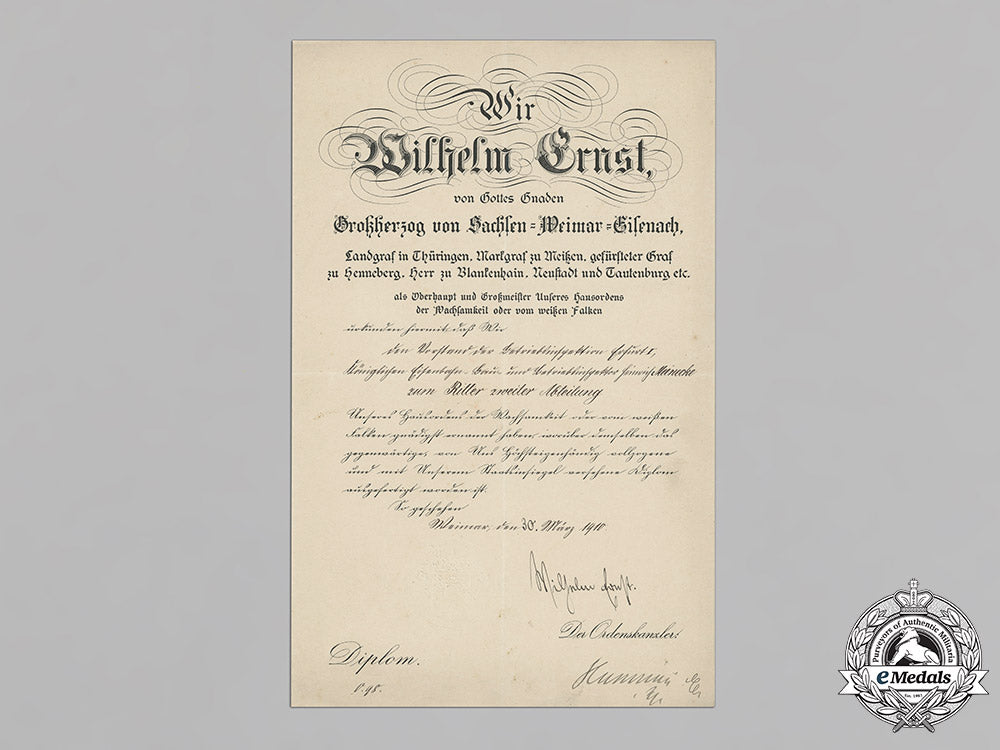 Wir
Wilhelm Ernst,
von Gottes Gnaden
Großherzog von Sachsen=Weimar=Eisenach,
Landgraf in Thüringen, Markgraf zu Meißen, gefürsteter Graf
zu Henneberg, Herr zu Blankenhain, Neustadt und Tautenburg etc.
als Oberhaupt und Großmeister Unseres Hausordens
der Wachsamkeit oder vom weißen Falken
urkunden hiermit, daß Wir
den Vorstand der Betriebsinspektion Erfurt 1,
Königlichen Eisenbahn-Bau- und Betriebsinspektor Heinrich Meinecke
zum Ritter zweiter Abteilung
Unseres Hausordens der Wachsamkeit oder vom weißen
Falken gnädigst ernannt haben, worüber demselben das
gegenwärtige, von Uns Höchsteigenhändig vollzogene
und mit Unserem Staatsinsiegel versehene Diplom
ausgefertigt worden ist.
So geschehen
Weimar, den 30. März 1910
Wilhelm Ernst.
Der Ordenskanzler:
Diplom.
Purveyors of Authentic Militaria
eMedals